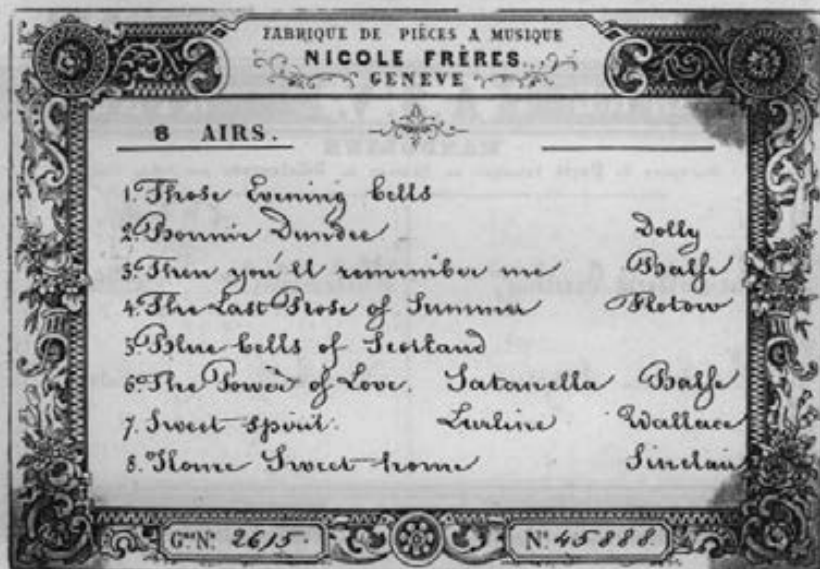 FABRIQUE DE PIÈCES A MUSIQUE
NICOLE FRÈRES
GENÈVE
8 AIRS.
1. Those Evening bells
2. Bonnie Dundee Dolly
3. Then you'll remember me Balfe
4. The Last Rose of Summer Flotow
5. Blue bells of Scotland
6. The Power of Love. Satanella Balfe
7. Sweet spirit. Lurline Wallace
8. Home Sweet home Sinclair
Gme No. 2615. No. 45888.